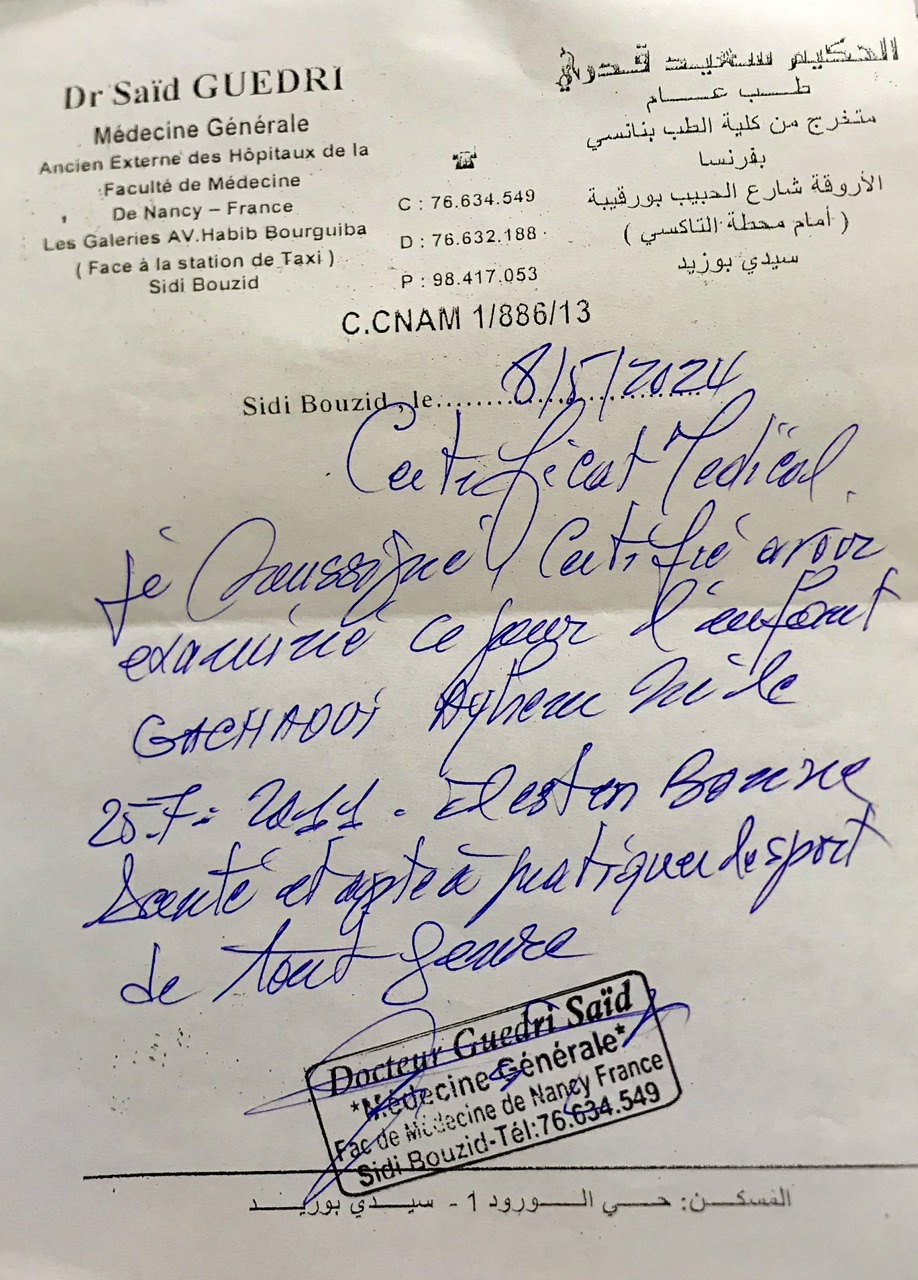 Dr Saïd GUEDRI
Médecine Générale
Ancien Externe des Hôpitaux de la
Faculté de Médecine
De Nancy – France
Les Galeries AV.Habib Bourguiba
( Face à la station de Taxi )
Sidi Bouzid
☎
C : 76.634.549
D : 76.632.188
P : 98.417.053
الحكيم سعيد قدري
طـــب عـــــام
متخرج من كلية الطب بنانسي
بفرنسا
الأروقة شارع الحبيب بورقيبة
( أمام محطة التاكسي )
سيدي بوزيد
C.CNAM 1/886/13
Sidi Bouzid , le 8/5/2024
Certificat Medical
Je Soussigné Certifié avoir
examiné ce jour l'enfant
GACHAOUI Ayhem Né le
25-7-2011. Il est en Bonne
Santé et apte à pratiquer de sport
de tout genre
Docteur Guedri Saïd
*Médecine Générale*
Fac de Médecine de Nancy France
Sidi Bouzid-Tél:76.634.549
المسكـــن: حـــي الـــورود 1 - سيـــدي بوزيـــد